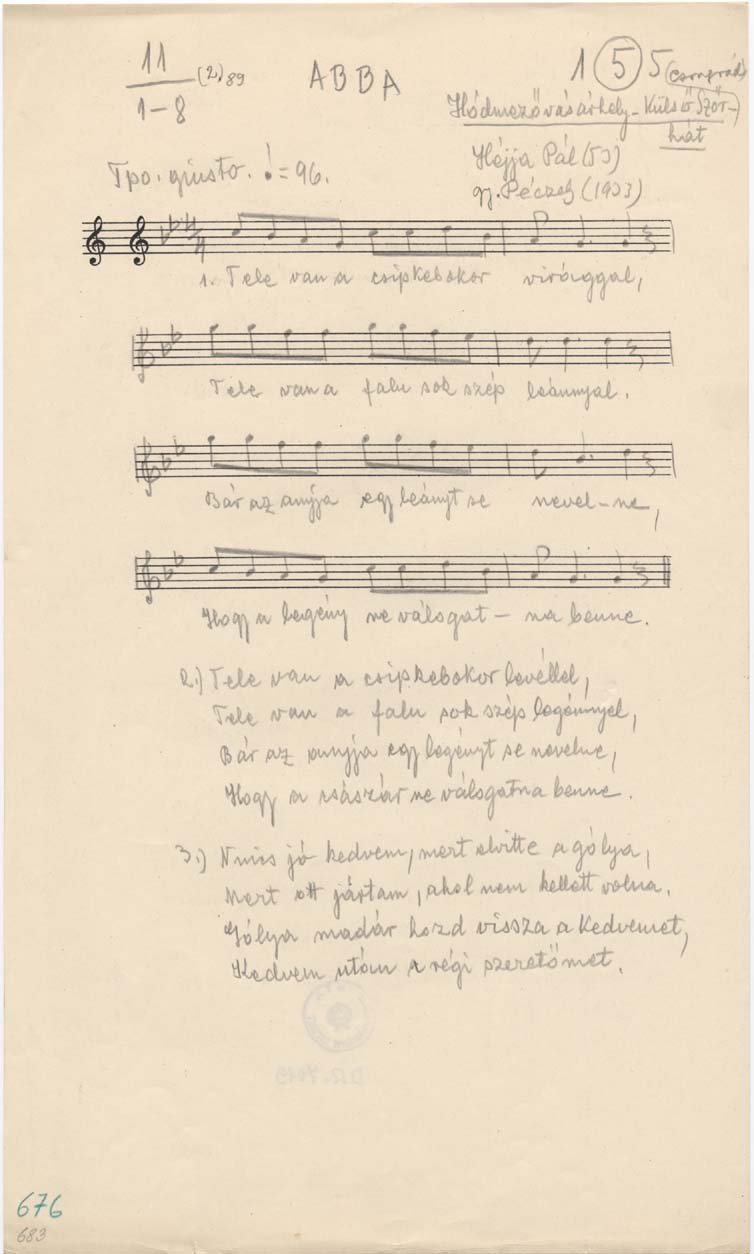 11
1-8
(2).89
ABBA
1 5 5 (Csongrád)
Hódmezővásárhely-Külső Ször-
hát
Héjja Pál (53)
gy. Péczely (1933)
Tpo. giusto. ♩=96.
4
4
1. Tele van a csipkebokor virággal,
Tele van a falu sok szép leánnyal.
Bár az anyja egy leányt se nevel-ne,
Hogy a legény ne válogat- na benne.
2.) Tele van a csipkebokor levéllel,
Tele van a falu sok szép legénnyel,
Bár az anyja egy legényt se nevelne,
Hogy a császár ne válogatna benne.
3.) Nincs jó kedvem, mert elvitte a gólya,
Mert ott jártam, ahol nem kellett volna.
Gólya madár hozd vissza a kedvemet,
Kedvem után a régi szeretőmet.
676
683